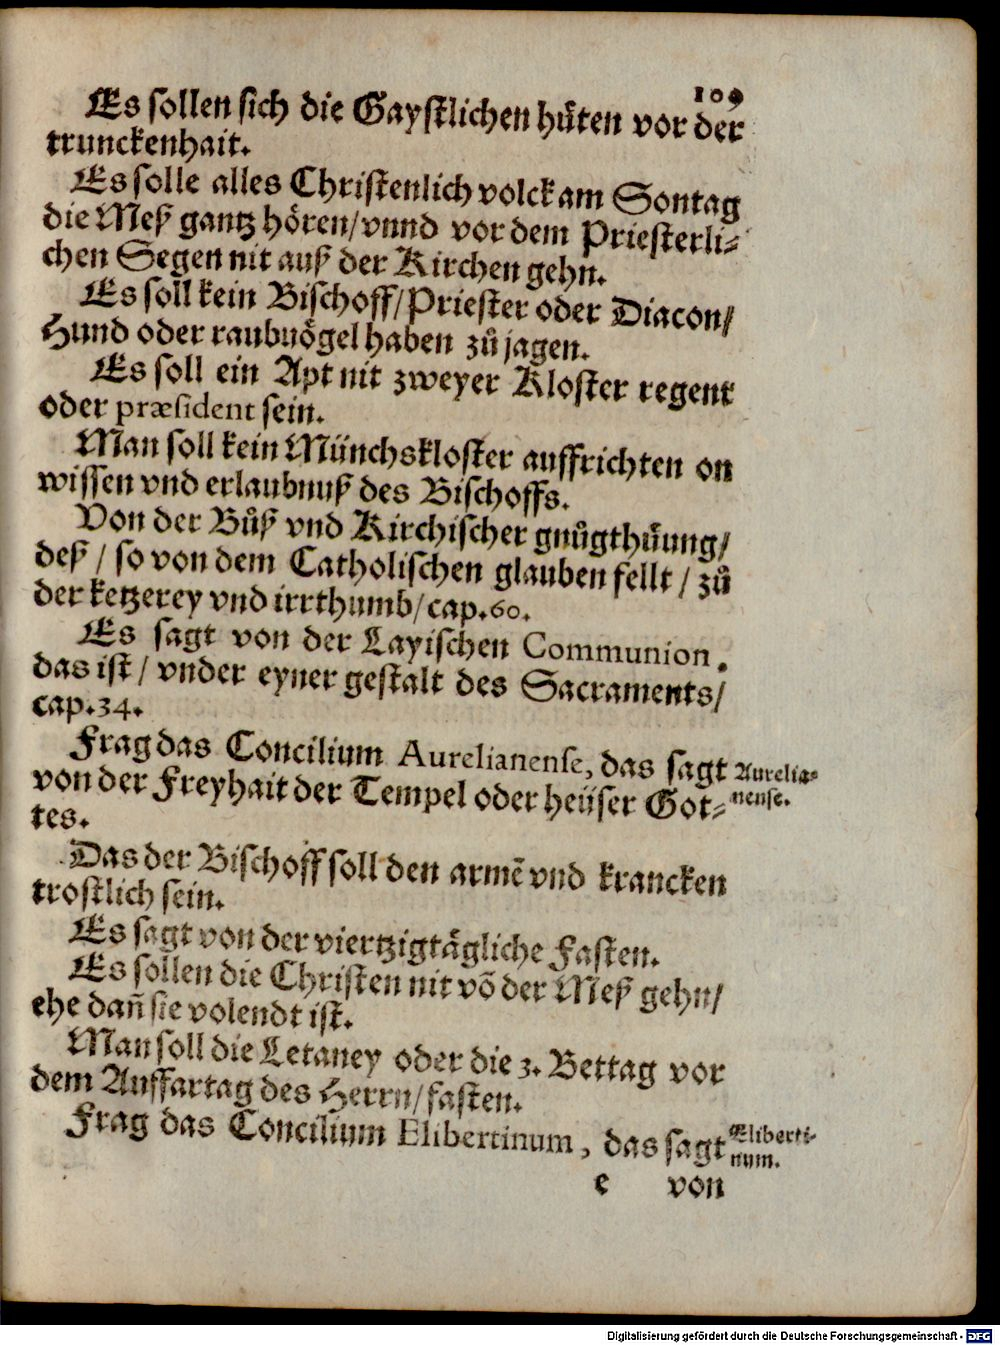 109
Es sollen sich die Gaystlichen hůten vor der
trunckenhait.
Es solle alles Christenlich volck am Sontag
die Meß gantz hören/vnnd vor dem Priesterli-
chen Segen nit auß der Kirchen gehn.
Es soll kein Bischoff/Priester oder Diacon/
Hund oder raubuögel haben zů jagen.
Es soll ein Apt nit zweyer Kloster regent
oder præsident sein.
Man soll kein Münchskloster auffrichten on
wissen vnd erlaubnuß des Bischoffs.
Von der Bůß vnd Kirchischer gnůgthůung/
deß / so von dem Catholischen glauben fellt / zů
der ketzerey vnd irrthumb/cap.60.
Es sagt von der Layischen Communion.
das ist / vnder eyner gestalt des Sacraments/
cap.34.
Frag das Concilium Aurelianense, das sagt
Aurelia-
nense.
von der Freyhait der Tempel oder heüser Got-
tes.
Das der Bischoff soll den armē vnd krancken
trostlich sein.
Es sagt von der viertzigtägliche Fasten.
Es sollen die Christen nit võ der Meß gehn/
ehe dañ sie volendt ist.
Man soll die Letaney oder die 3. Bettag vor
dem Auffartag des Herrn/fasten.
Frag das Concilium Elibertinum, das sagt
Eliberti-
num.
e von
Digitalisierung gefördert durch die Deutsche Forschungsgemeinschaft - DFG